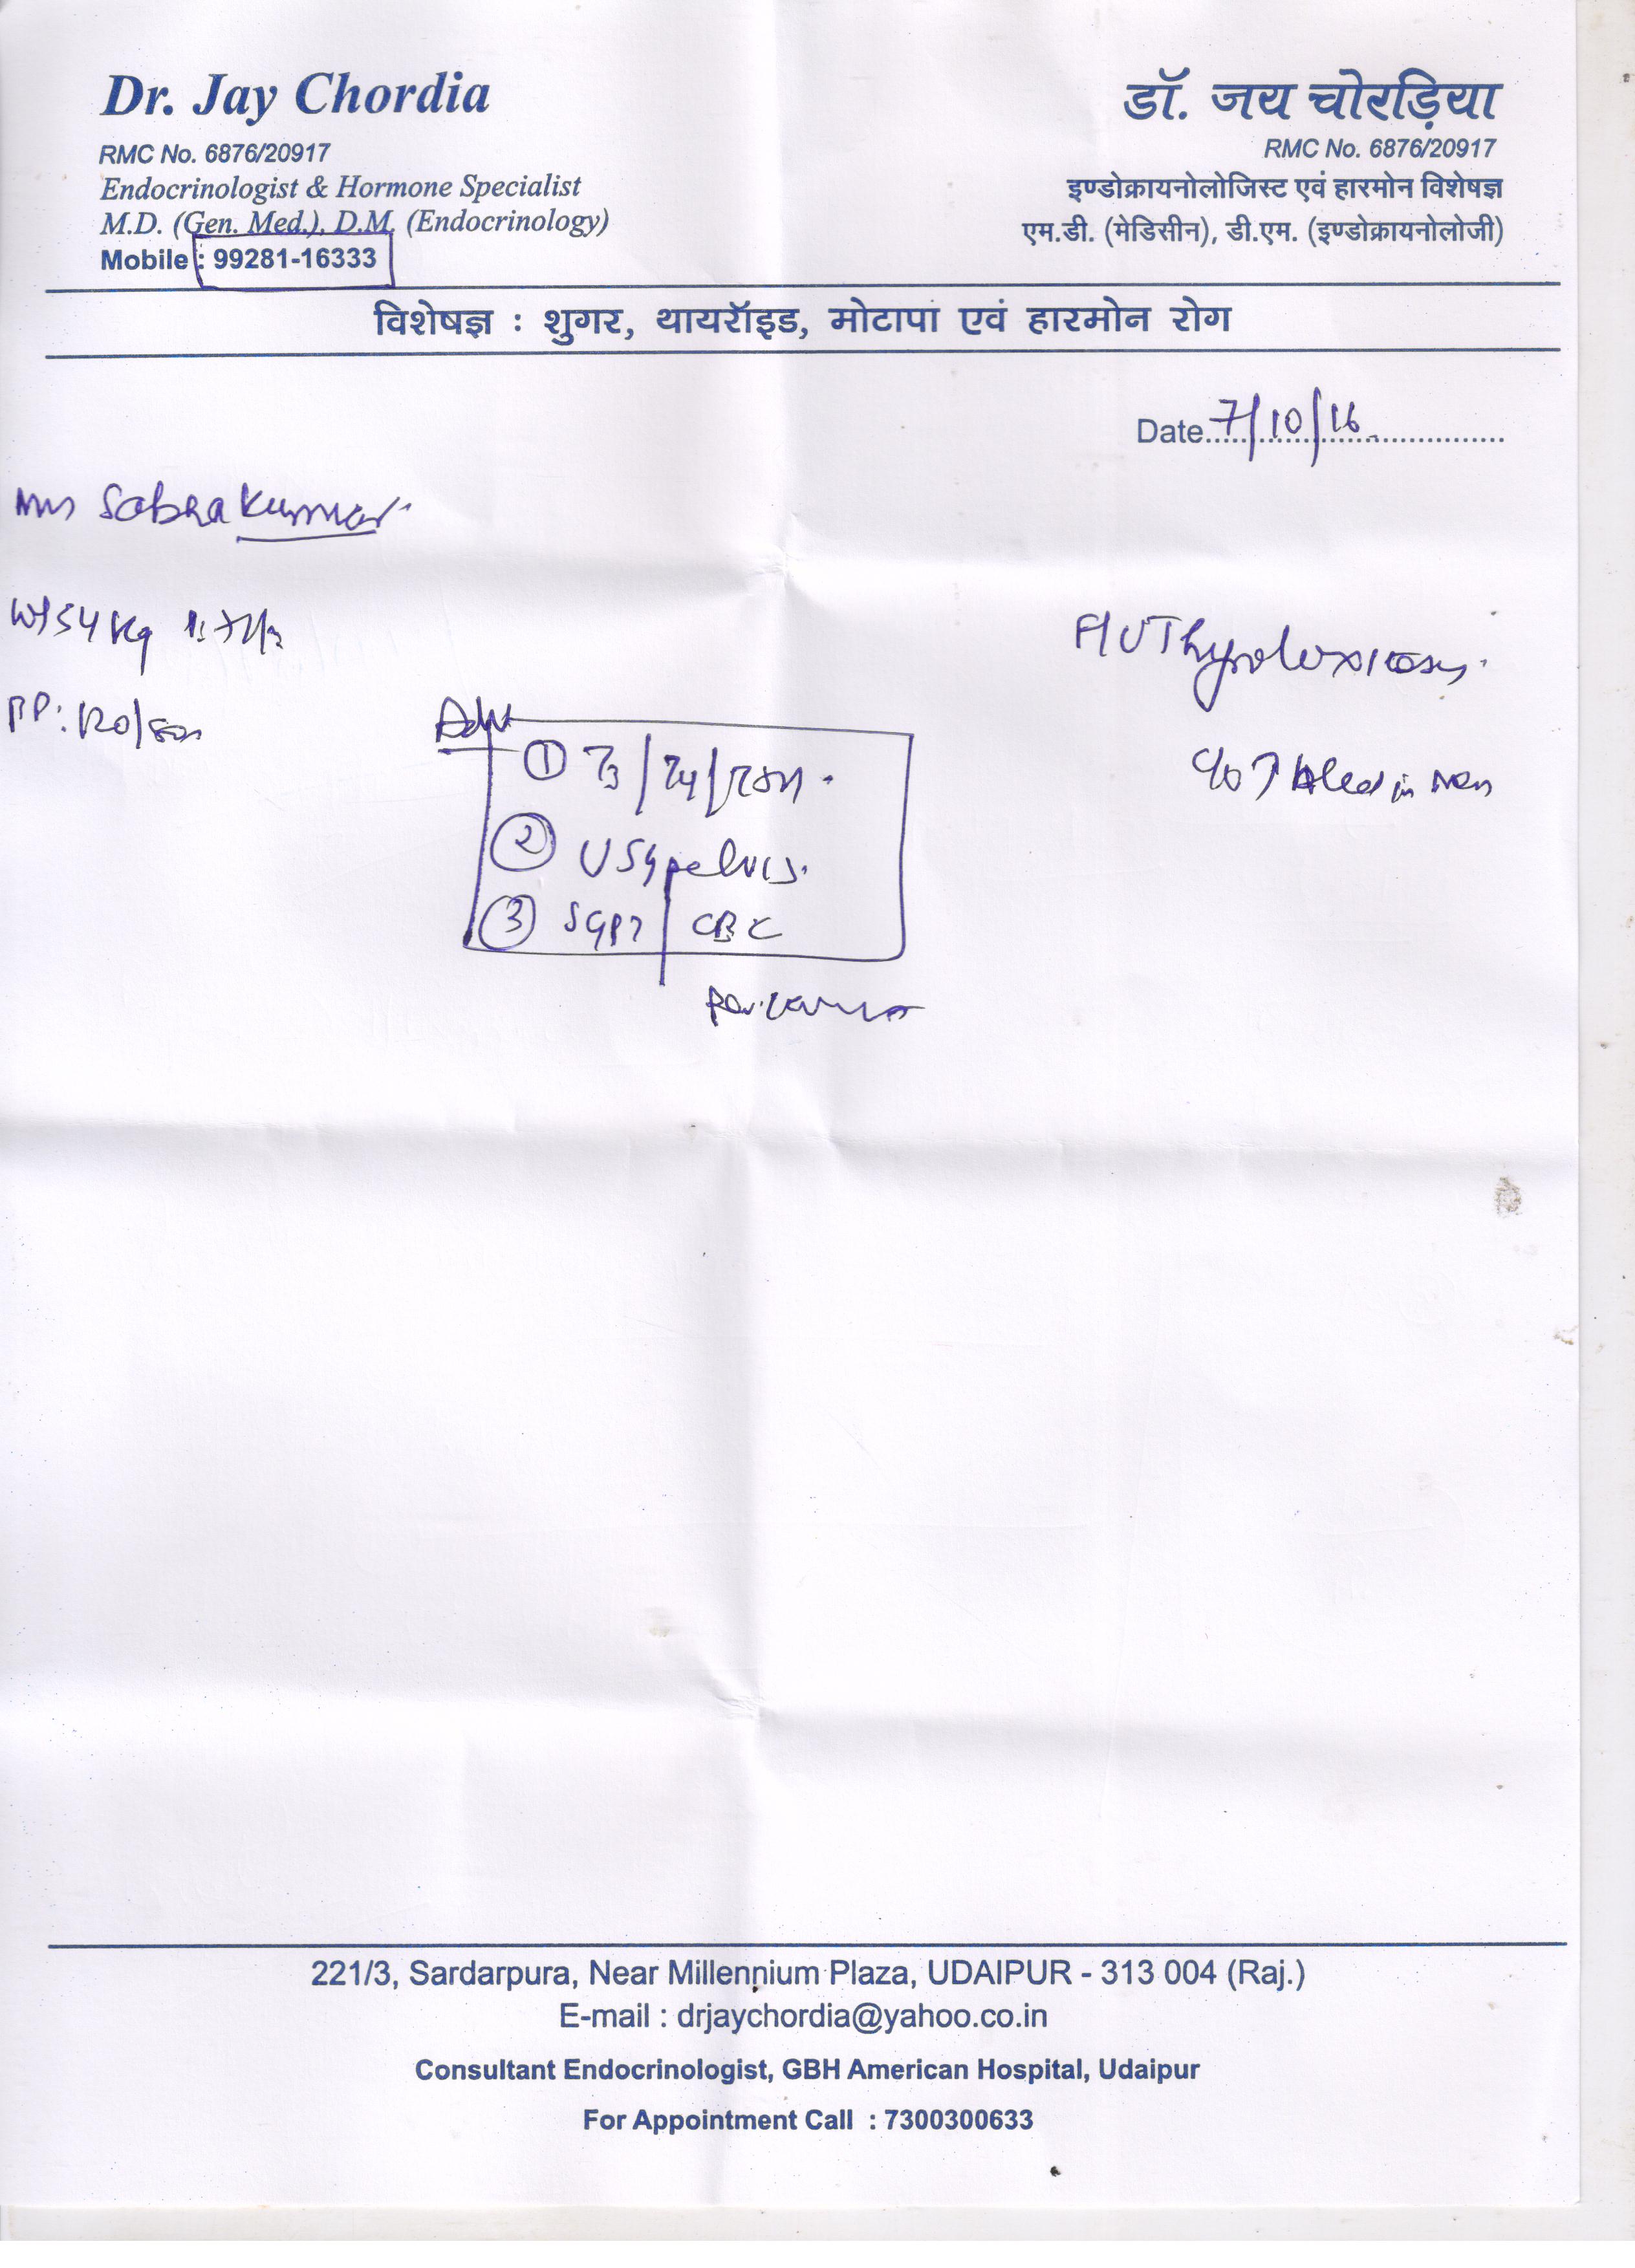 Dr. Jay Chordia
RMC No. 6876/20917
Endocrinologist & Hormone Specialist
M.D. (Gen. Med.), D.M. (Endocrinology)
Mobile : 99281-16333
डॉ. जय चोरड़िया
RMC No. 6876/20917
इण्डोक्रायनोलोजिस्ट एवं हारमोन विशेषज्ञ
एम.डी. (मेडिसीन), डी.एम. (इण्डोक्रायनोलोजी)
विशेषज्ञ : शुगर, थायरॉइड, मोटापा एवं हारमोन रोग
Date 7/10/16
Sabra Kumar
Wt 54 Kg
BP: 120/80
F/U Thyrotoxicosis
C/o ↑ bleed in
Adv
① T3/T4/TSH
② USG pelvis
③ SGPT | CBC
221/3, Sardarpura, Near Millennium Plaza, UDAIPUR - 313 004 (Raj.)
E-mail : drjaychordia@yahoo.co.in
Consultant Endocrinologist, GBH American Hospital, Udaipur
For Appointment Call : 7300300633